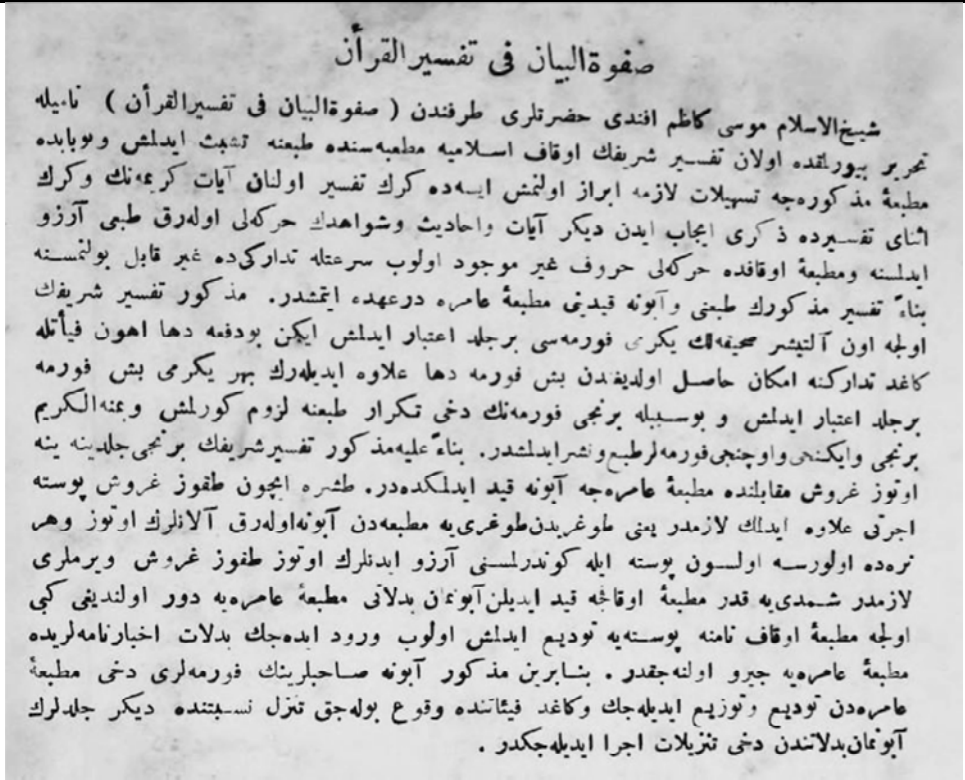 صفوةالبیان فی تفسیرالقرأن
شیخ‌الاسلام موسی کاظم افندی حضرتلری طرفندن ( صفوةالبیان فی تفسیرالقرأن ) نامیله
تحریر بیورلمقده اولان تفسیر شریفك اوقاف اسلامیه مطعبه‌سنده طبعنه تشبث ایدلمش وبوبابده
مطبعۀ مذکوره‌جه تسهیلات لازمه ابراز اولنمش ایسه‌ده کرك تفسیر اولنان آیات کریمه‌نك وکرك
اثنای تفسیرده ذکری ایجاب ایدن دیکر آیات واحادیث وشواهدك حرکه‌لی اوله‌رق طبعی آرزو
ایدلسنه ومطبعۀ اوقافده حرکه‌لی حروف غیر موجود اولوب سرعتله تدارکی‌ده غیر قابل بولنمسنه
بناءً تفسیر مذکورك طبعنی وآبونه قیدینی مطبعۀ عامره درعهده ایتمشدر. مذکور تفسیر شریفك
اولجه اون آلتیشر صحیفه‌لك یکرمی فورمه‌سی برجلد اعتبار ایدلمش ایکن بودفعه دها اهون فیأتله
کاغد تدارکنه امکان حاصل اولدیغندن بش فورمه دها علاوه ایدیله‌رك بهر یکرمی بش فورمه
برجلد اعتبار ایدلمش و بوسببله برنجی فورمه‌نك دخی تکرار طبعنه لزوم کورلمش وبمنه‌الکریم
برنجی وایکنجی‌واوچنجی‌فورمه‌لرطبع‌ونشرایدلمشدر. بناءً علیه‌مذکور تفسیرشریفك برنجی‌جلدینه ینه
اوتوز غروش مقابلنده مطبعۀ عامره‌جه آبونه قید ایدلمکده‌در. طشره ایچون طقوز غروش پوسته
اجرتی علاوه ایدلك لازمدر یعنی طوغریدن‌طوغری‌یه مطبعه‌دن آبونه‌اوله‌رق آلانلرك اوتوز وهر
نره‌ده اولورسه اولسون پوسته ایله کوندرلمسنی آرزو ایدنلرك اوتوز طقوز غروش ویرملری
لازمدر شمدی‌یه قدر مطبعۀ اوقافجه قید ایدیلن‌آبونمان بدلاتی مطبعۀ عامره‌یه دور اولندیغی کبی
اولجه مطبعۀ اوقاف نامنه پوسته‌یه تودیع ایدلمش اولوب ورود ایده‌جك بدلات اخبارنامه‌لریده
مطبعۀ عامره‌یه جیرو اولنه‌جقدر. بنابرین مذکور آبونه صاحبلرینك فورمه‌لری دخی مطبعۀ
عامره‌دن تودیع وتوزیع ایدیله‌جك وکاغد فیئاتنده وقوع بوله‌جق تنزل نسبتنده دیکر جلدلرك
آبونمان‌بدلاتندن دخی تنزیلات اجرا ایدیله‌جکدر.